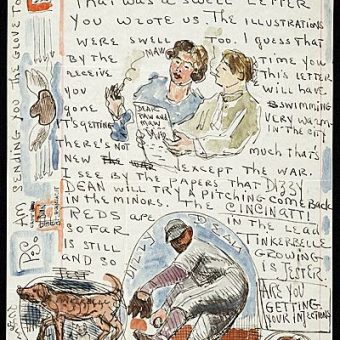 THAT WAS A SWELL LETTER
YOU WROTE US. THE ILLUSTRATIONS
WERE SWELL TOO. I GUESS THAT
BY THE MAW TIME YOU
RECEIVE THIS LETTER
YOU WILL HAVE
GONE SWIMMING
IT'S GETTING VERY WARM
IN THE CITY
DEAR
PAW AND
MAW
THERE'S NOT MUCH THATS
NEW EXCEPT THE WAR.
I SEE BY THE PAPERS THAT DIZZY
DEAN WILL TRY A PITCHING COME BACK
IN THE MINORS. THE CINCINATTI
REDS ARE IN THE LEAD
SO FAR TINKERBELLE
IS STILL GROWING
AND SO IS JESTER
DIZZY DEAN
ARE YOU
GETTING
YOUR INJECTIONS
AM SENDING YOU THIS GLOVE TO